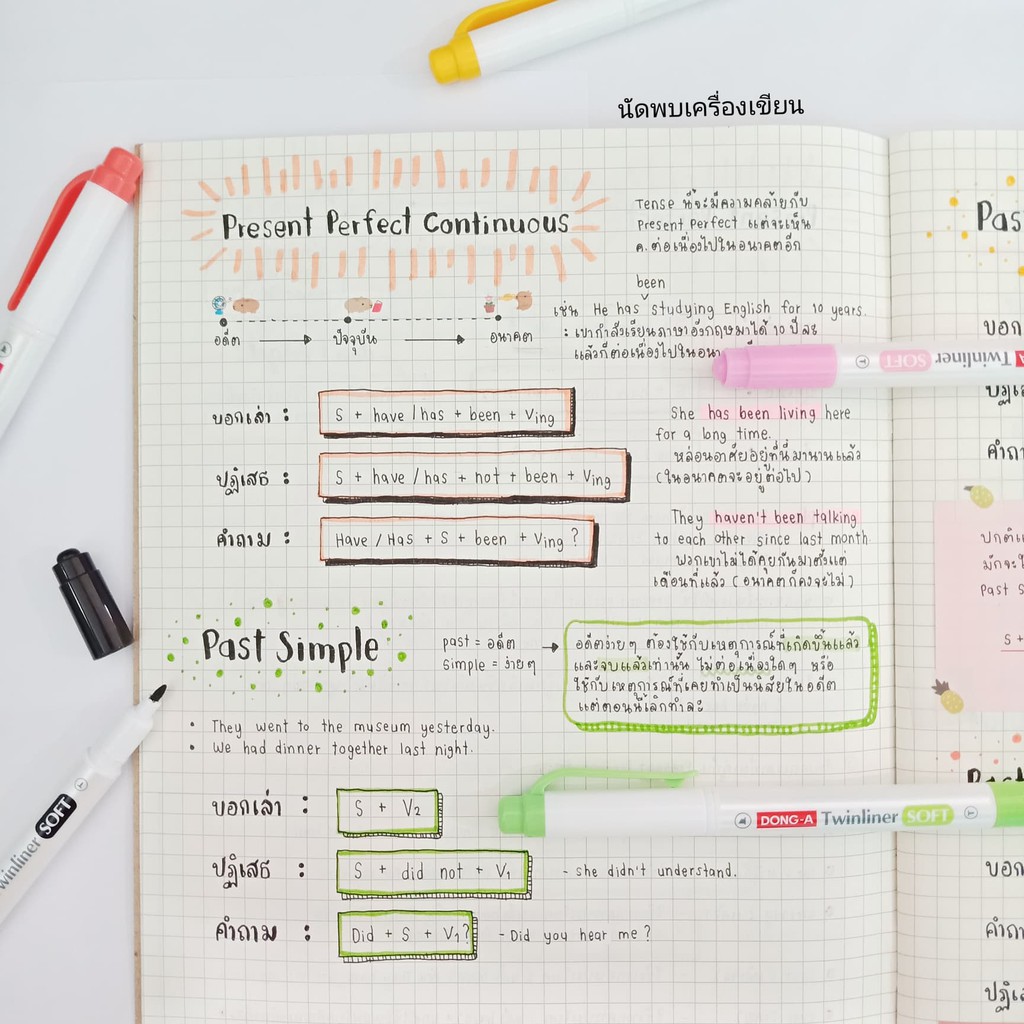 นัดพบเครื่องเขียน
Present Perfect Continuous
Tense นี้จะมีความคล้ายกับ
Present Perfect แต่จะเห็น
ค.ต่อเนื่องไปในอนาคตอีก
อดีต
ปัจจุบัน
อนาคต
been
เช่น He has studying English for 10 years.
: เขากำลังเรียนภาษาอังกฤษมาได้ 10 ปีละ
แล้วก็ต่อเนื่องไปในอนา
บอกเล่า : S + have / has + been + Ving
ปฏิเสธ : S + have / has + not + been + Ving
คำถาม : Have / Has + S + been + Ving ?
She has been living here
for a long time.
หล่อนอาศัยอยู่ที่นี่มานานแล้ว
(ในอนาคตจะอยู่ต่อไป)
They haven't been talking
to each other since last month
พวกเขาไม่ได้คุยกันมาตั้งแต่
เดือนที่แล้ว (อนาคตก็คงจะไม่)
Past Simple
past = อดีต
Simple = ง่ายๆ
อดีตง่ายๆ ต้องใช้กับเหตุการณ์ที่เกิดขึ้นแล้ว
และจบแล้วเท่านั้น ไม่ต่อเนื่องใดๆ หรือ
ใช้กับเหตุการณ์ที่เคยทำเป็นนิสัยในอดีต
แต่ตอนนี้เลิกทำละ
• They went to the museum yesterday.
• We had dinner together last night.
บอกเล่า : S + V2
ปฏิเสธ : S + did not + V1 - she didn't understand.
คำถาม : Did + S + V1? - Did you hear me ?
Pas
บอก
ปฏิเส
คำถา
ปกติแ
มักจะใ
Past S
S +
Past
บอก
คำถา
ปฏิเส
Twinliner SOFT
DONG-A Twinliner SOFT
Twinliner SOFT